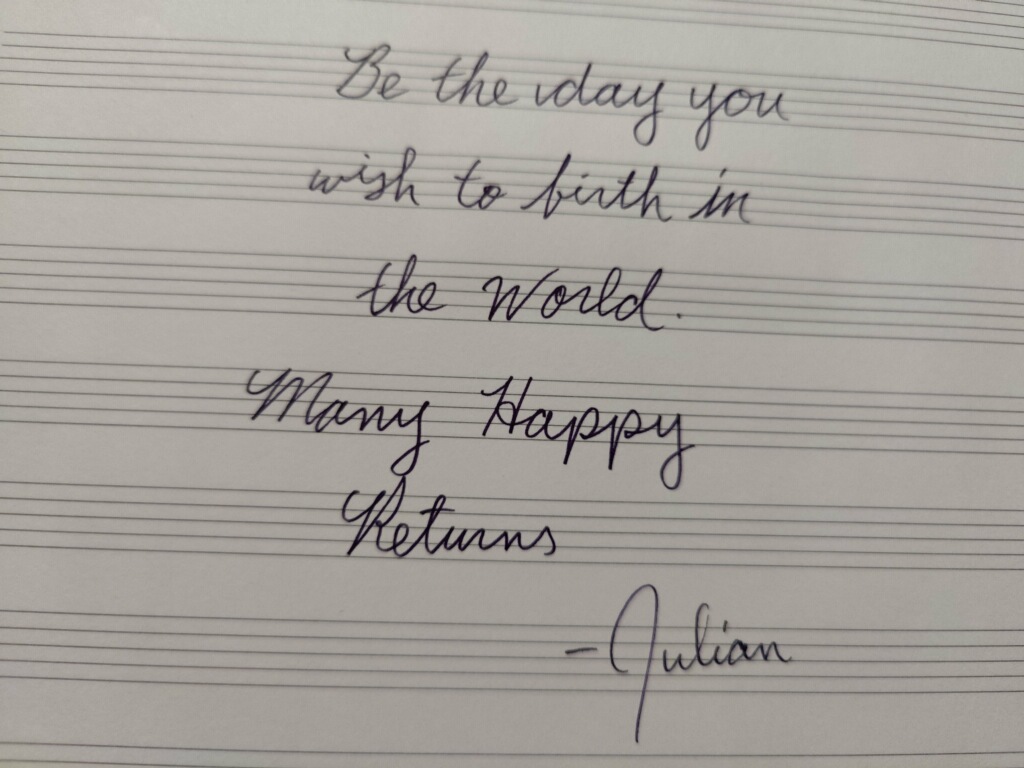 Be the day you
wish to birth in
the World.
Many Happy
Returns
- Julian